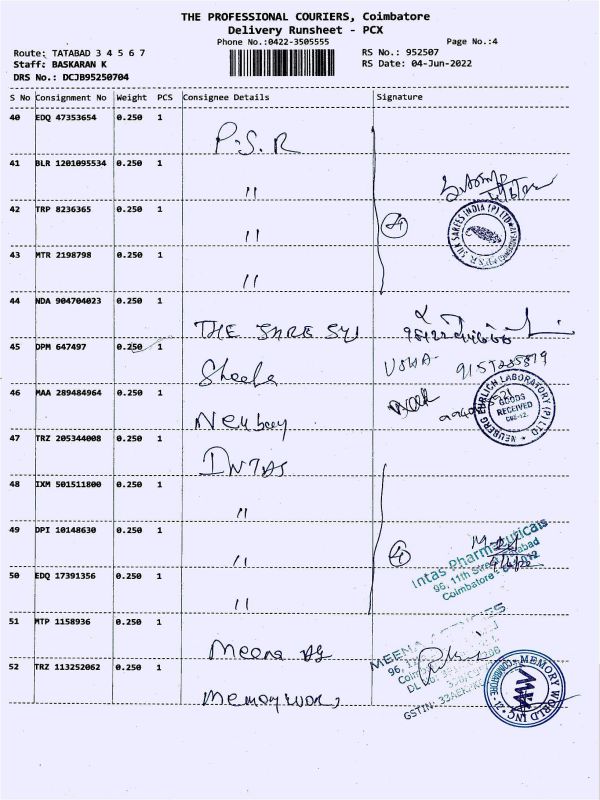 THE PROFESSIONAL COURIERS, Coimbatore
Delivery Runsheet - PCX
Phone No.:0422-3505555
Page No.:4
Route: TATABAD 3 4 5 6 7
RS No.: 952507
Staff: BASKARAN K
RS Date: 04-Jun-2022
DRS No.: DCJB95250704
S No Consignment No Weight PCS Consignee Details Signature
40 EDQ 47353654 0.250 1
P.S.R
41 BLR 1201095534 0.250 1
"
42 TRP 8236365 0.250 1
"
4
SILK SAREES INDIA (P) LTD
43 MTR 2198798 0.250 1
"
44 NDA 904704023 0.250 1
THE
45 DPM 647497 0.250 1
USHA-
Sheela
46 MAA 289484964 0.250 1
NEUBERG EHRLICH LABORATORY (P) LTD
GOODS
RECEIVED
47 TRZ 205344008 0.250 1
INTAS
48 IXM 501511800 0.250 1
"
49 DPI 10148630 0.250 1
"
4
Intas Pharmaceuticals
96, 11th Street
Coimbatore
50 EDQ 17391356 0.250 1
"
51 MTP 1158936 0.250 1
Meena AG
MEENA AGENCIES
96,
DL NO:
GSTIN:
52 TRZ 113252062 0.250 1
MEMORY WORLD INC
COIMBATORE - 12